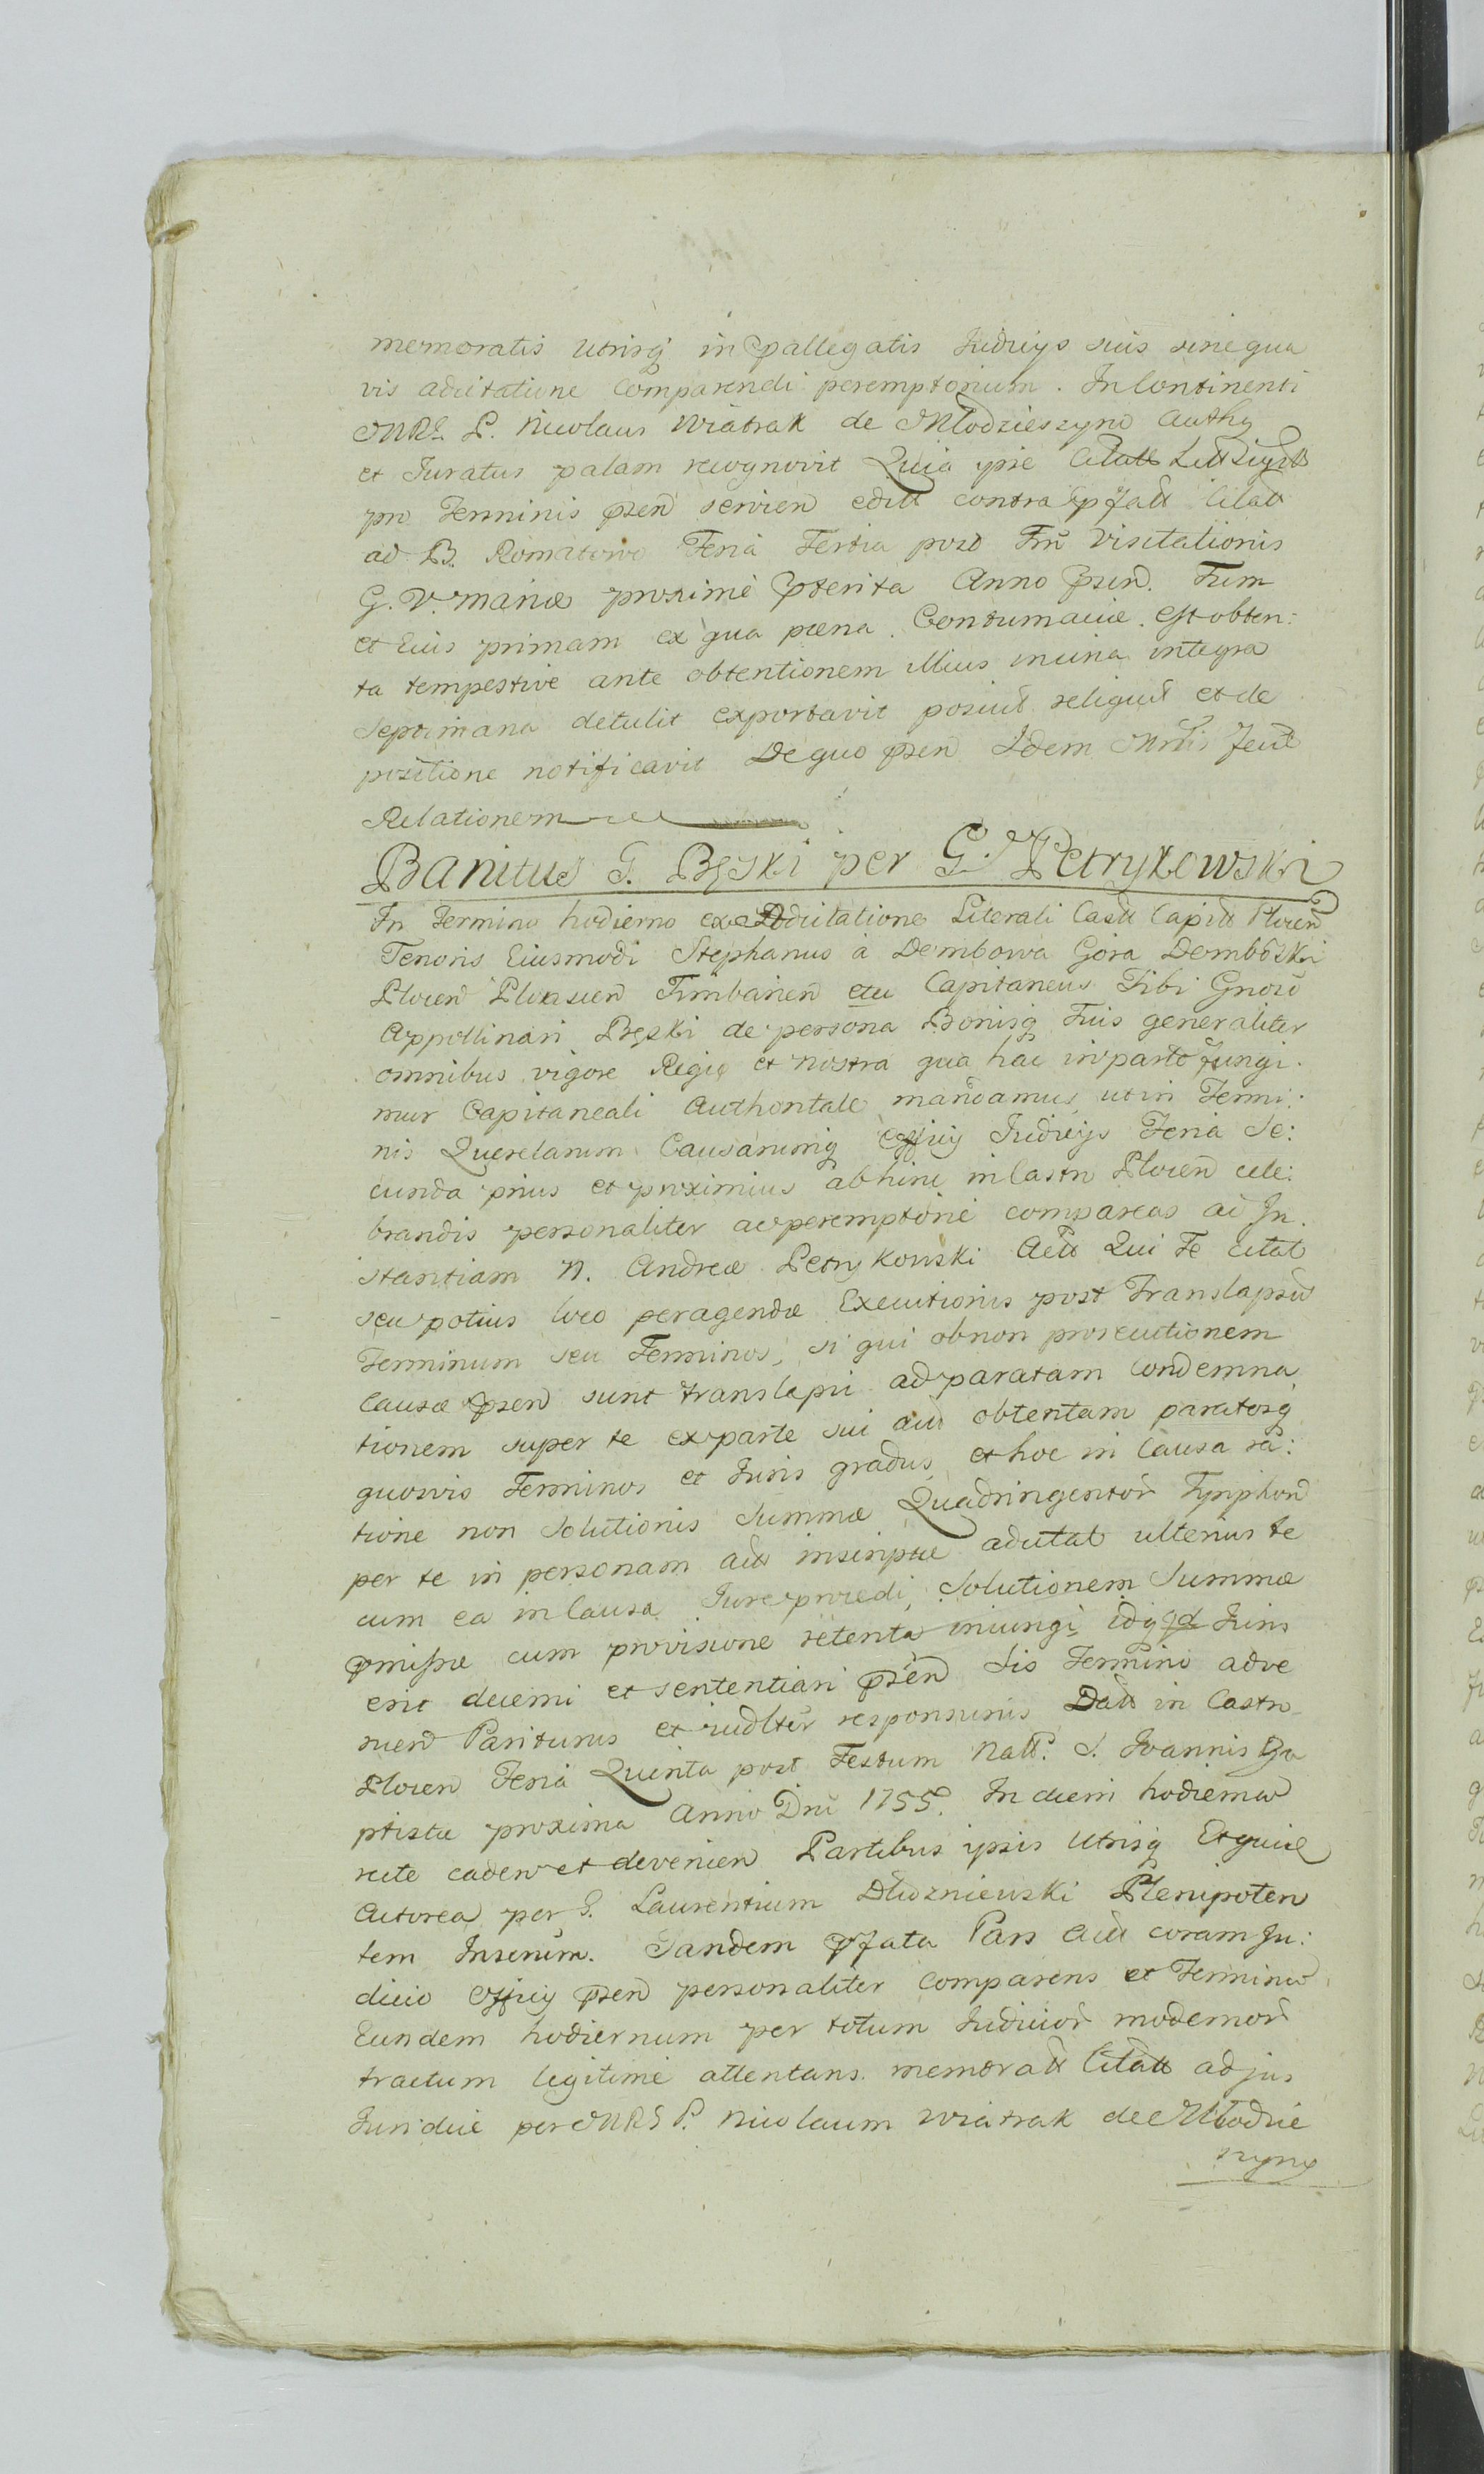 memoratis utrisq in pallegatis Judicijs suis sine qua
vis adcitatione Comparendi peremptorium. In Continenti
MRS P. Nicolaus Wiatrak de Mlodzieszyno Authq
et Juratus palam recognovit Quia ipse Citatt Litt Sigill
pro Terminis psen servien editt contra pfatt Citatt
ad B. Romatowo Feria Tertia post Fm Visitationis
G. V. Mariæ proxime pterita Anno psen. Tum
et Eius primam ex qua pæna Contumaciæ est obten:
ta tempestive ante obtentionem illius in una integra
Septimana detulit exportavit posuit reliquit et de
positione notificavit De quo psen Idem Mrlis fecit
Relationem
Banitus G. Bęski per G. Petrykowski
In Termino hodierno ex Adcitatione Literali Castr Capitt Plocen
Tenoris Eiusmodi Stephanus à Dembowa Góra Dembôski
Plocen Ploxascen Timbarien etc Capitaneus Tibi Gnoso
Appollinari Bęski de persona Bonisq Tuis generaliter
omnibus vigore Regia et nostra qua hac in parte fungi.
mur Capitaneali Authoritate mandamus ut in Termi:
nis Querelarum Causarumq Officij Judicijs Feria Se:
cunda prius et proximius abhinc in Castro Plocen cele:
brandis personaliter ac peremptorie compareas ad In.
stantiam N. Andreæ Petrykowski Actt Qui Te Citat
seu potius loco peragendæ Executionis post Translapsum
Terminum seu Terminos, si qui ob non prosecutionem
Causæ psen sunt translapsi ad paratam Condemna
tionem super te ex parte sui Actt obtentam paratosq
quosvis Terminos et Juris gradus et hoc in Causa râ:
tione non Solutionis Summæ Quadringentor Tynphon
per te in personam actt inscriptæ adcitat ulterius te
cum ea in Causa Jure procedi, Solutionem Summæ
pmissæ cum provisione retenta iniungi idq qd Juris
erit decerni et sententiari psen Sis Termino adve
nien Pariturus et iudlter responsurus Datt in Castro
Plocen Feria Quinta post Festum Natt. S. Joannis Ba
ptistæ proxima Anno Dni 1755. In diem hodiernum
recte caden et devenien Partibus ipsis Utrisq Et quidem
Actorea per G. Laurentium Dłuzniewski Plenipoten
tem Inserum. Tandem pfata Pars Actt coram Ju:
dicio Officij psen personaliter comparens et Terminum
Eundem hodiernum per totum Judicior modernor
tractum legitime attentans memoratt Citatt ad jus
Juridice per MRS P. Nicolaum Wiatrak de Mlodzie
szyno